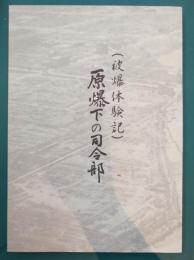 (被爆体験記)
原爆下の司令部